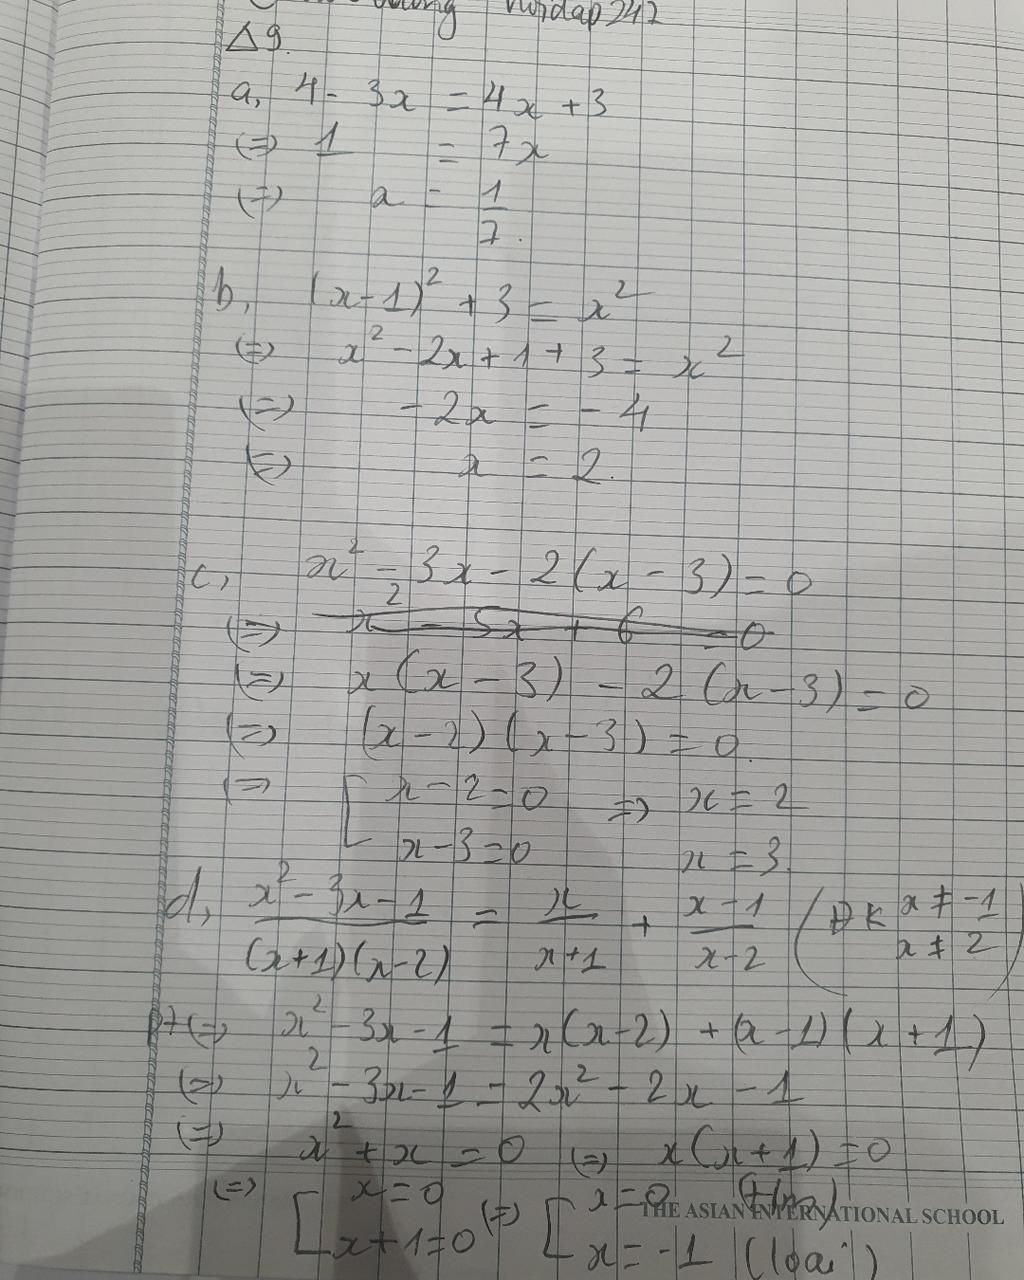 hoidap247
Δ9.
a, 4 - 3x = 4x + 3
(=) 1 = 7x
(=) x = 1/7.
b, (x-1)² + 3 = x²
(=) x² - 2x + 1 + 3 = x²
(=) -2x = -4
(=) x = 2.
c, x² - 3x - 2(x - 3) = 0
(=) x² - 5x + 6 = 0
(=) x(x - 3) - 2(x - 3) = 0
(=) (x - 2)(x - 3) = 0.
(=) [ x - 2 = 0 => x = 2
x - 3 = 0 x = 3.
d, (x² - 3x - 1)/((x+1)(x-2)) = x/(x+1) + (x-1)/(x-2) (ĐK x ≠ -1
x ≠ 2)
PT (=) x² - 3x - 1 = x(x-2) + (x-1)(x+1)
(=) x² - 3x - 1 = 2x² - 2x - 1
(=) x² + x = 0 (=) x(x+1) = 0
(=) [ x = 0 (=) [ x = 0 (t/m)
x + 1 = 0 x = -1 (loại)
THE ASIAN INTERNATIONAL SCHOOL